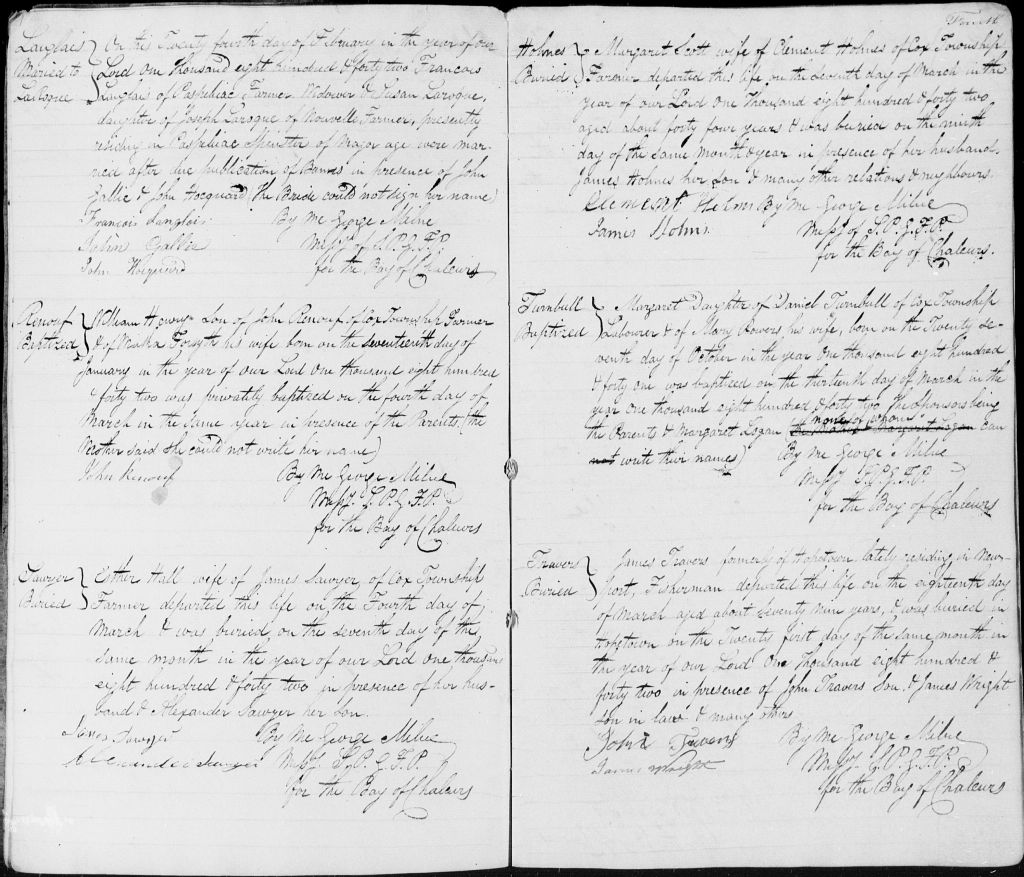 Langlais } On this Twenty fourth day of February in the year of our
Maried to Lord One thousand eight hundred & forty two Francois
LaRoque Langlais of Paspebiac Farmer Widower & Susan Laroque,
daughter of Joseph Laroque of Nouvelle, Farmer, presently
residing in Paspebiac Spinster of Major age were mar-
ried after due publication of Banns in presence of John
Gallie & John Hocquard (the Bride could not sign her name)
Francois Langlais By Me George Milne
John Gallie Missy. of S.P.G.F.P.
John Hocquard for the Bay of Chaleurs
Renouf } William Henry Son of John Renouf of Cox Township Farmer
Baptized & of Forsyth his wife born on the seventeenth day of
January in the year of our Lord One thousand eight hundred
forty two was privately baptized on the fourth day of
March in the same year in presence of the Parents (the
Mother said she could not write her name)
John Renouf By Me George Milne
Missy. S.P.G.F.P.
for the Bay of Chaleurs
Sawyer } Esther Hall wife of James Sawyer of Cox Township
Buried Farmer departed this life on the Fourth day of
March & was buried on the seventh day of the
same month in the year of our Lord One thousand
eight hundred & forty two in presence of her hus-
band & Alexander Sawyer her Son.
James Sawyer By Me George Milne
Alexander Sawyer Missy S.P.G.F.P.
for the Bay of Chaleurs
Holmes } Margaret Scott wife of Clement Holmes of Cox Township
Buried Farmer departed this life on the seventh day of March in the
year of our Lord one thousand eight hundred & forty two
aged about forty four years & was buried on the ninth
day of the same month & year in presence of her husband
James Holmes her Son & many other relations & neighbours.
Clement Helms By Me George Milne
James Holms Missy of S.P.G.F.P.
for the Bay of Chaleurs.
Turnbull } Margaret Daughter of Daniel Turnbull of Cox Township
Baptized Labourer & of Mary Bowers his wife, born on the Twenty se-
venth day of October in the year One thousand eight hundred
& forty one was baptized on the thirteenth day of March in the
year one thousand eight hundred & forty two The Sponsors being
none of whom
the Parents & Margaret Logan can
not write their names) By Me George Milne
Missy S.P.G.F.P.
for the Bay of Chaleurs
Travers } James Travers formerly of Hobstown lately residing in New-
Buried port, Fisherman departed this life on the eighteenth day
of March aged about seventy nine years, & was buried in
Hobstown on the Twenty first day of the same month in
the year of our Lord One thousand eight hundred &
forty two in presence of John Travers Son & James Wright
Son in law & many others
John Travers By Me George Milne
James Wright Missy S.P.G.F.P.
for the Bay of Chaleurs